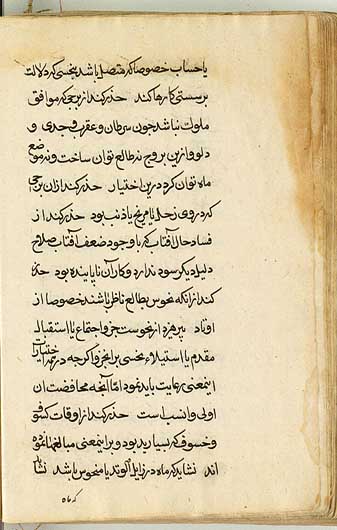 یا حساب خصوصا که متصل باشد بنحسی که دلالت
بر سستی کارها کند حذر کند از برجی که موافق
ملوک نباشد چون سرطان و عقرب و جدی و
دلو و ازین بروج نه طالع توان ساخت و نه موضع
ماه توان کرد درین اختیار حذر کند ازان برجی
که در وی زحل یا مریخ یا ذنب بود حذر کند از
فساد حال آفتاب که با وجود ضعف آفتاب صلاح
دلیل دیگر سود ندارد و کار آن ناپاینده بود حذر
کند از انکه نحوس بطالع ناظر باشند خصوصا از
اوتاد بپرهیزد از نحوست جزو اجتماع یا استقبال
مقدم یا استیلاء نحسی بر انجزو اگرچه در همه اختیارات
اینمعنی رعایت باید نمود اما آنجه محافضت ان
اولی و انسب است حذر کند از اوقات کسوف و
و خسوف که بسیار بد بود و براینمعنی مبالغها نموده
اند نشاید که ماه در زایل الوتد یا منحوس باشد نشاید
که ماه